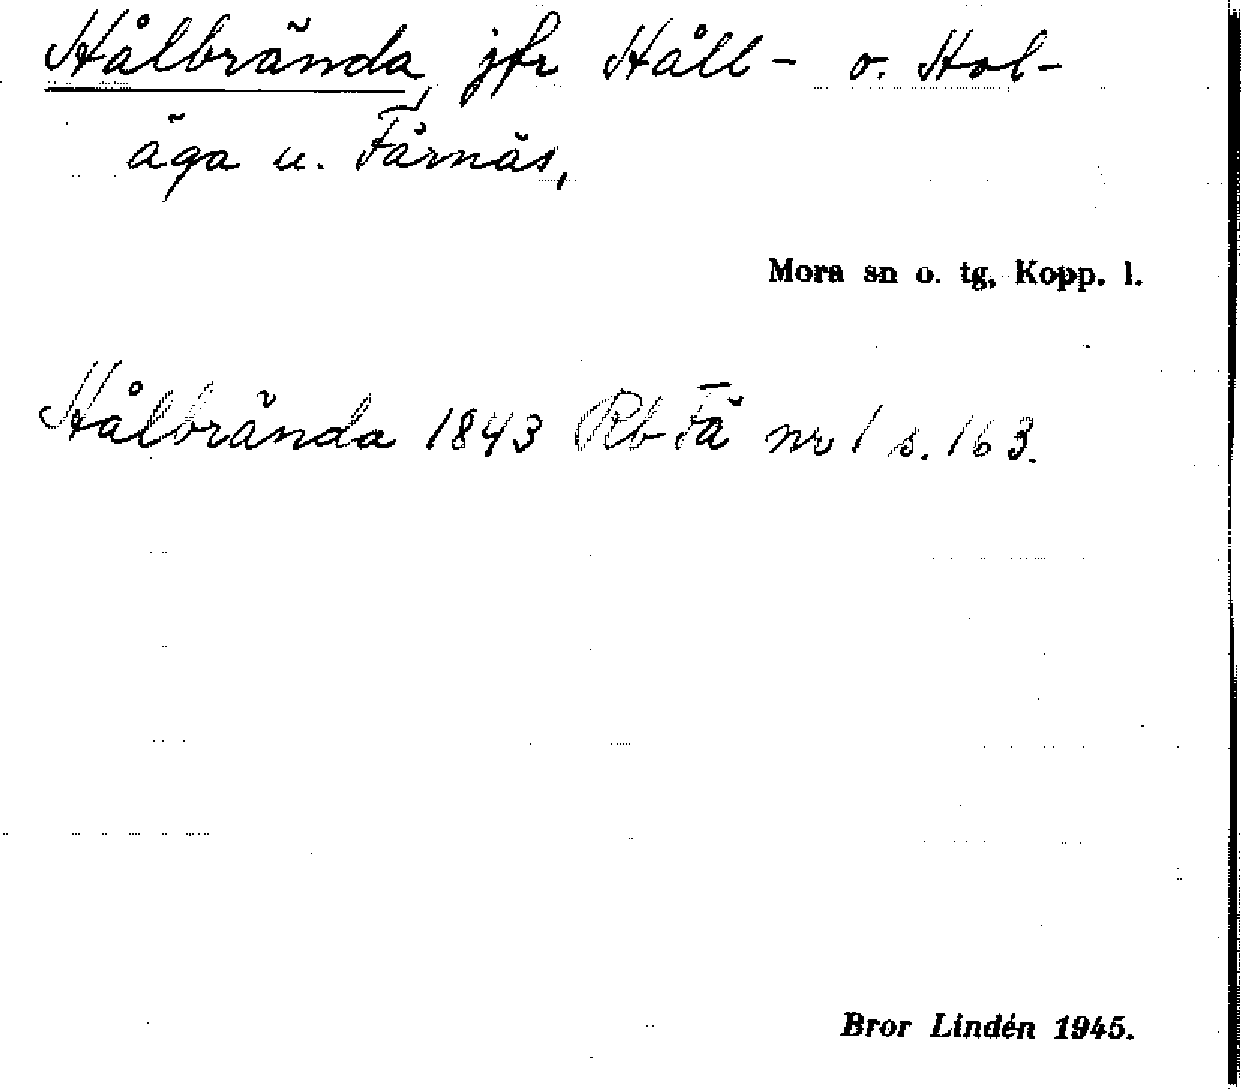 Hålbrända jfr Håll- o. Hol-
äga u. Färnäs,
Mora sn o. tg, Kopp. l.
Hålbrända 1843 Rb Fä nr 1 s. 163.
Bror Lindén 1945.